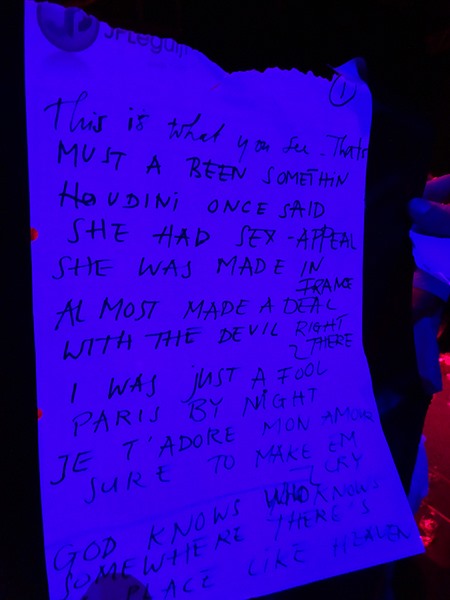 ①
This is what you see. Thats
MUST A BEEN SOMETHIN
HOUDINI ONCE SAID
SHE HAD SEX-APPEAL
SHE WAS MADE IN
FRANCE
ALMOST MADE A DEAL
WITH THE DEVIL RIGHT
THERE
I WAS JUST A FOOL
PARIS BY NIGHT
JE T'ADORE MON AMOUR
SURE TO MAKE EM
CRY
GOD KNOWS WHO KNOWS
SOMEWHERE THERE'S
PLACE LIKE HEAVEN